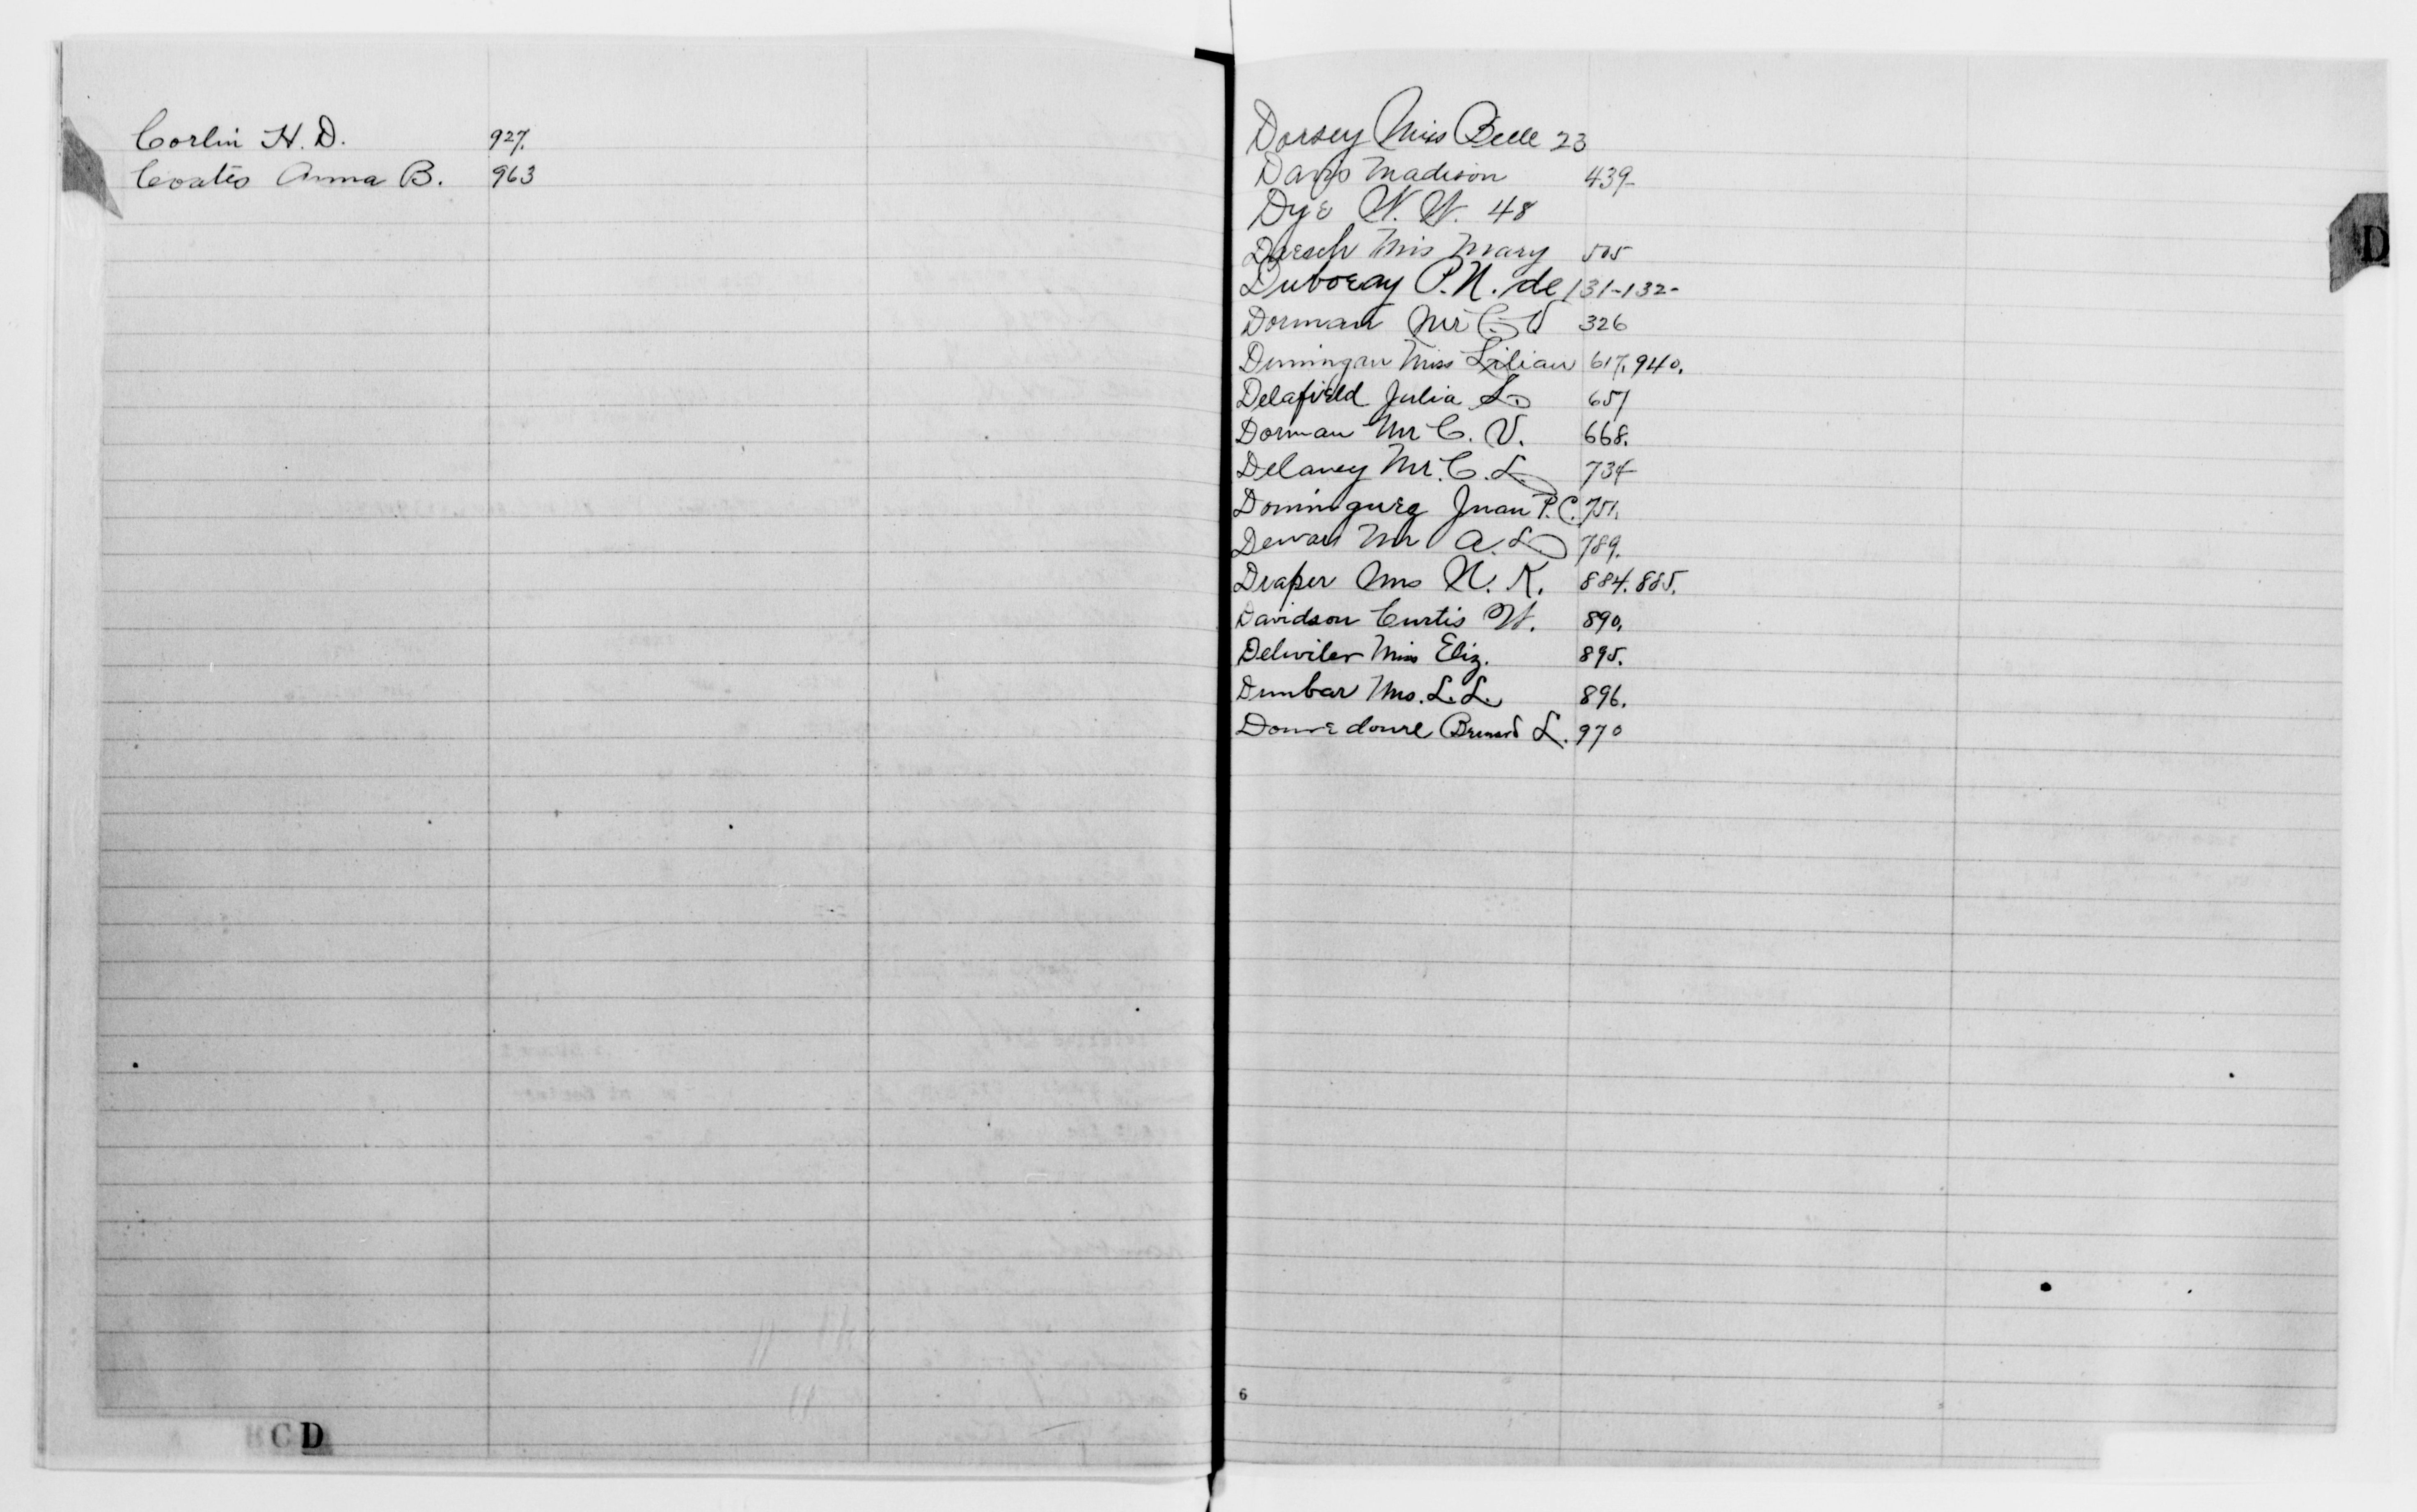 Corlin H. D. 927.
Coates Anna B. 963
B C D
Dorsey Miss Belle 23
Davis Madison 439-
Dye W. W. 48
Dresch Miss Mary 505
Duboray P. N. de 131-132-
Dorman Mr C. V. 326
Dunnigan Miss Lilian 617. 940.
Delafield Julia L. 657
Dorman Mr C. V. 668.
Delaney Mr. C. L. 734
Dominguez Juan P. C. 751.
Dewars Mr A. L. 789.
Draper Mrs N. K. 884. 885.
Davidson Curtis W. 890.
Detwiler Miss Eliz. 895.
Dunbar Mrs. L. L. 896.
L. 970
D
6